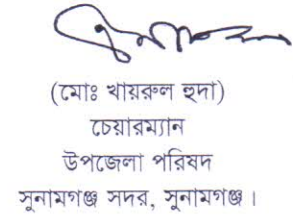 (মোঃ খায়রুল হুদা)
চেয়ারম্যান
উপজেলা পরিষদ
সুনামগঞ্জ সদর, সুনামগঞ্জ।